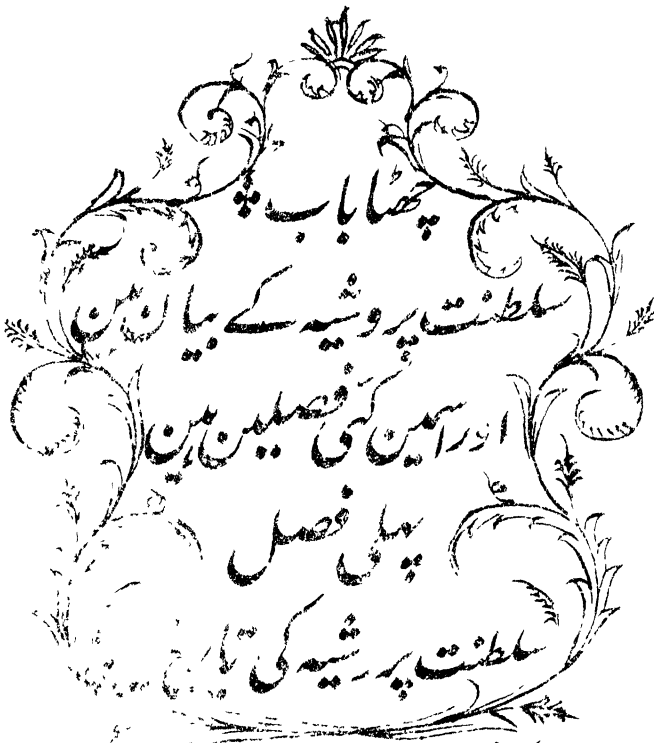 چھٹا باب
سلطنت پروشیہ کے بیان مین
اور اسمین کئی فصیلین ہین
پہلی فصل
سلطنت پررشیہ کی تاریخ